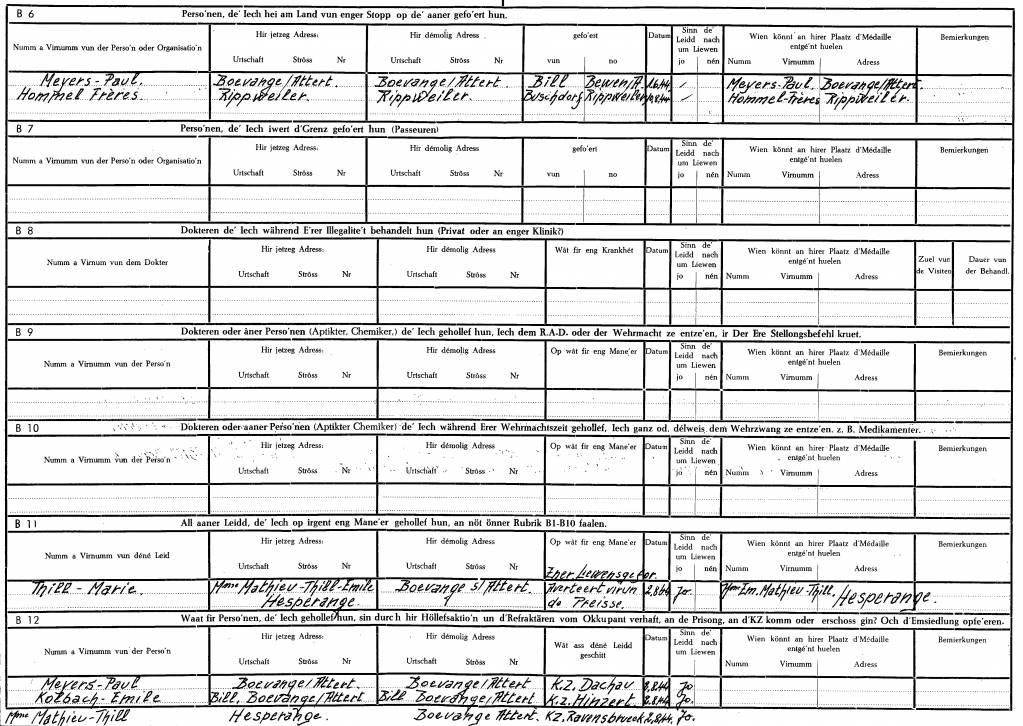 B 6 Perso'nen, de' Iech hei am Land vun enger Stopp op de' aaner gefo'ert hun.
Numm a Virnumm vun der Perso'n oder Organisatio'n Hir jetzeg Adress: Hir démolig Adress gefo'est Datum Sinn de' Leidd nach um Liewen Wien könnt an hirer Plaatz d'Médaille entgé'nt huelen Bemierkungen
Urtschaft Ströss Nr Urtschaft Ströss Nr vun no jo nén Numm Virnumm Adress
Meyers-Paul. Boevange/Attert. Boevange/Attert. Bill Bewen/A. / Meyers-Paul. Boevange/Attert.
Hommel Frères. Rippweiler. Rippweiler. Buschdorf Rippweiler / Hommel-Frères Rippweiler.
B 7 Perso'nen, de' Iech iwert d'Grenz gefo'ert hun (Passeuren)
Numm a Virnumm vun der Perso'n oder Organisatio'n Hir jetzeg Adress: Hir démolig Adress gefo'ert Datum Sinn de' Leidd nach um Liewen Wien könnt an hirer Plaatz d'Médaille entgé'nt huelen Bemierkungen
Urtschaft Ströss Nr Urtschaft Ströss Nr vun no jo nén Numm Virnumm Adress
B 8 Dokteren de' Iech während E'rer Illegalite't behandelt hun (Privat oder an enger Klinik?)
Numm a Virnum vun dem Dokter Hir jetzeg Adress: Hir démolig Adress Wât fir eng Krankhét Datum Sinn de' Leidd nach um Liewen Wien könnt an hirer Plaatz d'Médaille entgé'nt huelen Zuel vun de Visiten Dauer vun der Behandl.
Urtschaft Ströss Nr Urtschaft Ströss Nr jo nén Numm Virnumm Adress
B 9 Dokteren oder âner Perso'nen (Aptikter, Chemiker,) de' Iech gehollef hun, Iech dem R.A.D. oder der Wehrmacht ze entze'en, ir Der Ere Stellongsbefehl kruet.
Numm a Virnumm vun der Perso'n Hir jetzeg Adress: Hir démolig Adress Op wât fir eng Mane'er Datum Sinn de' Leidd nach um Liewen Wien könnt an hirer Plaatz d'Médaille entgé'nt huelen Bemierkungen
Urtschaft Ströss Nr Urtschaft Ströss Nr jo nén Numm Virnumm Adress
B 10 Dokteren oder aaner Perso'nen (Aptikter Chemiker) de' Iech während Erer Wehrmachtszeit gehollef, Iech ganz od. délweis dem Wehrzwang ze entze'en. z. B. Medikamenter.
Numm a Virnumm vun der Perso'n Hir jetzeg Adress: Hir démolig Adress Op wât fir eng Mane'er Datum Sinn de' Leidd nach um Liewen Wien könnt an hirer Plaatz d'Médaille entgé'nt huelen Bemierkungen
Urtschaft Ströss Nr Urtschaft Ströss Nr jo nén Numm Virnumm Adress
B 11 All aaner Leidd, de' Iech op irgent eng Mane'er gehollef hun, an nöt önner Rubrik B1-B10 faalen.
Numm a Virnumm vun déné Leid Hir jetzeg Adress: Hir démolig Adress Op wât fir eng Mane'er Datum Sinn de' Leidd nach um Liewen Wien könnt an hirer Plaatz d'Médaille entgé'nt huelen Bemierkungen
Urtschaft Ströss Nr Urtschaft Ströss Nr jo nén Numm Virnumm Adress
Ener Liewensgefor.
Thill-Marie. Mme Mathieu-Thill-Emile Boevange s/ Attert. Averteert virun 2.8.44 Jo. Em. Mathieu-Thill, Hesperange.
Hesperange. de Preisse.
B 12 Waat fir Perso'nen, de' Iech gehollef hun, sin durch hir Höllefsaktio'n un d'Refraktären vom Okkupant verhaft, an de Prisong, an d'KZ komm oder erschoss gin? Och d'Emsiedlung opfe'eren.
Numm a Virnumm vun der Perso'n Hir jetzeg Adress: Hir démolig Adress Wât ass déné Leidd geschitt Datum Sinn de' Leidd nach um Liewen Wien könnt an hirer Plaatz d'Médaille entgé'nt huelen Bemierkungen
Urtschaft Ströss Nr Urtschaft Ströss Nr jo nén Numm Virnumm Adress
Meyers-Paul Boevange/Attert. Boevange/Attert K.Z. Dachau 2.8.44 Jo
Kolbach-Emile Bill, Boevange/Attert. Bill Boevange/Attert. K.Z. Hinzert. 2.8.44 Jo.
Mme Mathieu-Thill Hesperange. Boevange Attert. KZ, Ravensbrueck 2.8.44. Jo.